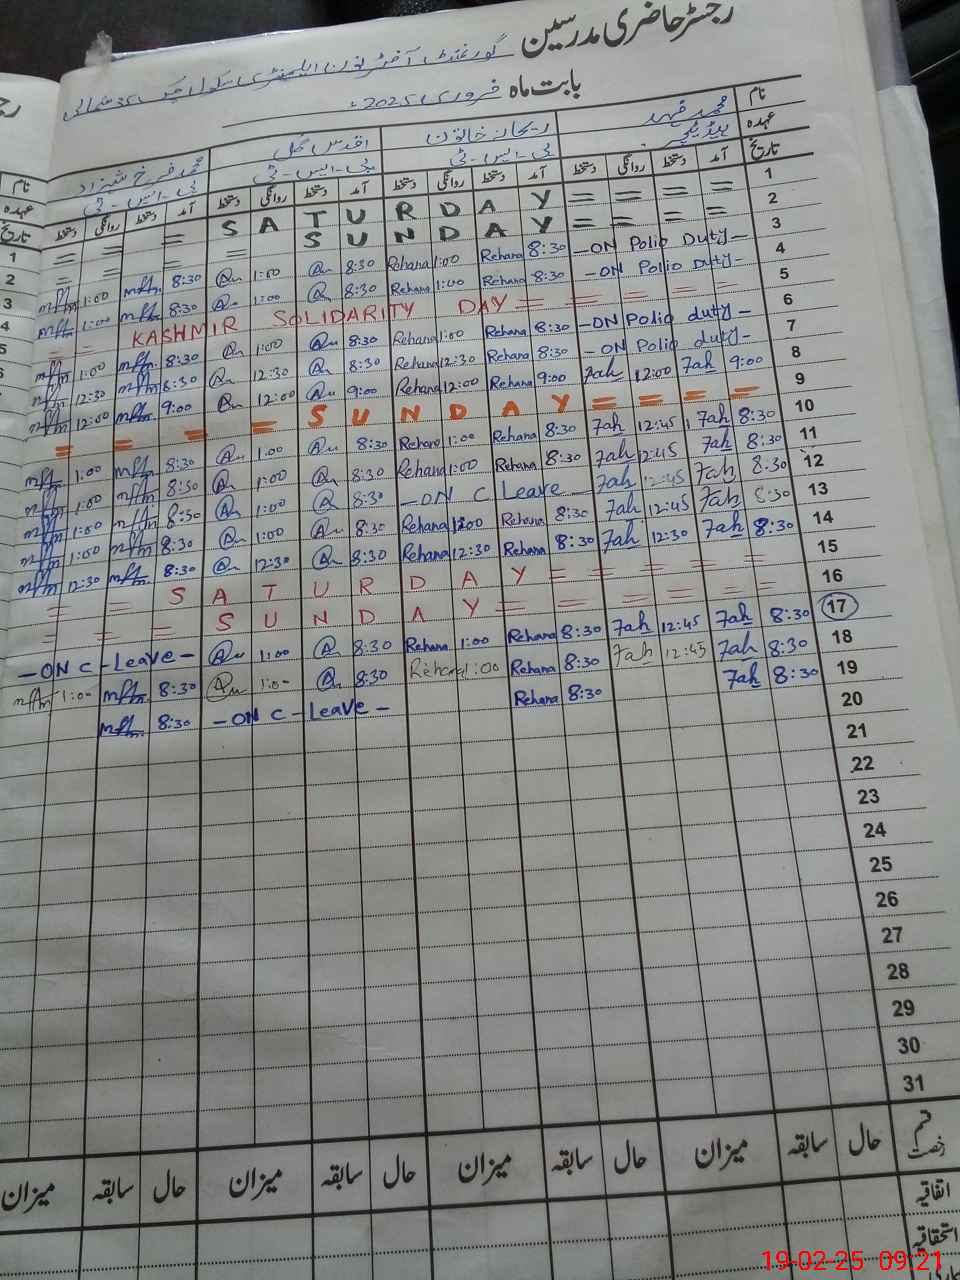 رجسٹر حاضری مدرسین
گورنمنٹ آفٹر نون ایلیمنٹری سکول چک 35 شمالی
بابت ماہ فروری 2025ء
نام محمد فہد ریحانہ خاتون اقدس گل محمد فرخ شہزاد
عہدہ ہیڈ ٹیچر پی-ایس-ٹی پی-ایس-ٹی پی-ایس-ٹی
تاریخ آمد دستخط روانگی دستخط آمد دستخط روانگی دستخط آمد دستخط روانگی دستخط آمد دستخط روانگی دستخط
= = S A T U R D A Y = = = = 1
= = = S U N D A Y = = = = 2
mfm 1:00 mfm 8:30 1:00 8:30 Rehana 1:00 Rehana 8:30 -ON Polio Duty- 3
mfm 1:00 mfm 8:30 1:00 8:30 Rehana 1:00 Rehana 8:30 -ON Polio Duty- 4
= = KASHMIR SOLIDARITY DAY = = = = = 5
mfm 1:00 mfm 8:30 1:00 8:30 Rehana 1:00 Rehana 8:30 -ON Polio duty- 6
mfm 12:30 mfm 8:30 12:30 8:30 Rehana 12:30 Rehana 8:30 -ON Polio duty- 7
mfm 12:00 mfm 9:00 12:00 9:00 Rehana 12:00 Rehana 9:00 7ah 12:00 7ah 9:00 8
= = = = S U N D A Y = = = = 9
mfm 1:00 mfm 8:30 1:00 8:30 Rehana 1:00 Rehana 8:30 7ah 12:45 7ah 8:30 10
mfm 1:00 mfm 8:30 1:00 8:30 Rehana 1:00 Rehana 8:30 7ah 12:45 7ah 8:30 11
mfm 1:00 mfm 8:30 1:00 8:30 -ON C Leave- 7ah 12:45 7ah 8:30 12
mfm 1:00 mfm 8:30 1:00 8:30 Rehana Rehana 8:30 7ah 12:45 7ah 8:30 13
mfm 12:30 mfm 8:30 12:30 8:30 Rehana 12:30 Rehana 8:30 7ah 12:30 7ah 8:30 14
= = S A T U R D A Y = = = = = 15
= = = S U N D A Y = = = = = 16
-ON C-Leave- 1:00 8:30 Rehana 1:00 Rehana 8:30 7ah 12:45 7ah 8:30 17
mfm 1:00 mfm 8:30 1:00 8:30 Rehana 1:00 Rehana 8:30 7ah 12:45 7ah 8:30 18
mfm 8:30 -ON C-Leave- Rehana 8:30 7ah 8:30 19
20
21
22
23
24
25
26
27
28
29
30
31
قسم رخصت حال سابقہ میزان حال سابقہ میزان حال سابقہ میزان حال سابقہ میزان
اتفاقیہ
استحقاقیہ
19-02-25 09:21